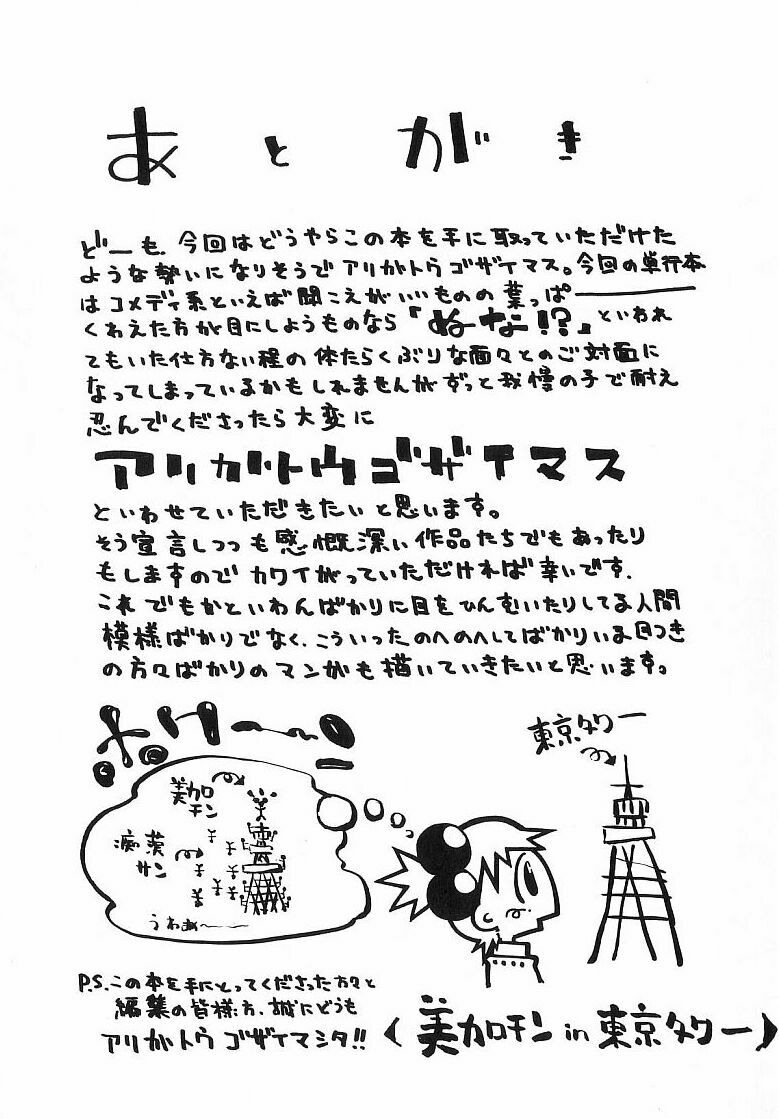 あとがき
どーも、今回はどうやらこの本を手に取っていただけた
ような勢いになりそうでアリガトウゴザイマス。今回の単行本
はコメディ系といえば聞こえがいいものの葉っぱ―
くわえた方が目にしようものなら『ぬーな!?』といわれ
てもいた仕方ない程の体たらくぶりな面々とのご対面に
なってしまっているかもしれませんがずっと我慢の子で耐え
忍んでくださったら大変に
アリガトウゴザイマス
といわせていただきたいと思います。
そう宣言しつつも感慨深い作品たちでもあったり
もしますのでカワイがっていただければ幸いです。
これでもかといわんばかりに目をひんむいたりしてる人間
模様ばかりでなく、こういったのへのへしてばかりいる目つき
の方々ばかりのマンガも描いていきたいと思います。
東京タワー
美カロ
チン
痴漢
サン
うわあ〜
P.S.この本を手にとってくださった方々と
編集の皆様方、誠にどうも
アリガトウゴザイマシタ!!
〈美カロチン in 東京タワー〉